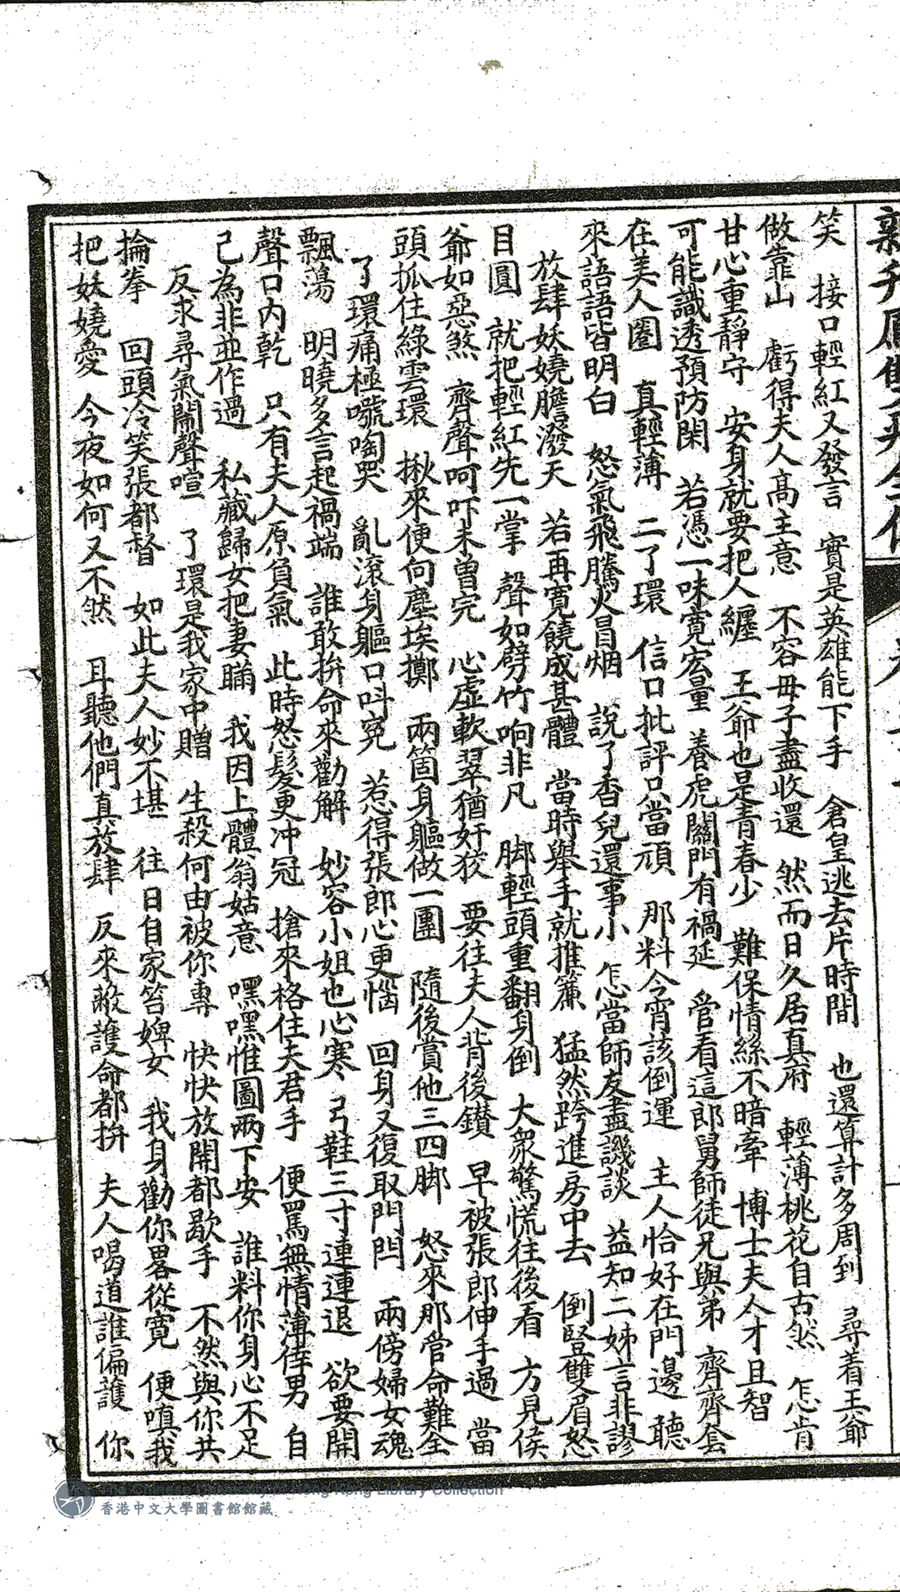 笑　接口輕紅又發言　實是英雄能下手　倉皇逃去片時間　也還算計多周到　尋着王爺
做靠山　虧得夫人高主意　不容母子盡收還　然而日久居真府　輕薄桃花自古然　怎肯
甘心重靜守　安身就要把人纏　王爺也是青春少　難保情絲不暗牽　博士夫人才且智
可能識透預防閑　若憑一味寬宏量　養虎關門有禍延　管看這郎舅師徒兄與弟　齊齊套
在美人圈　真輕薄　二了環　信口批評只當頑　那料今宵該倒運　主人恰好在門邊　聽
來語語皆明白　怒氣飛騰火冒烟　說了香兒還事小　怎當師友盡譏談　益知二姊言非謬
放肆妖嬈膽潑天　若再寬饒成甚體　當時舉手就推簾　猛然跨進房中去　倒豎雙眉怒
目圓　就把輕紅先一掌　聲如劈竹响非凡　脚輕頭重翻身倒　大衆驚慌往後看　方見侯
爺如惡煞　齊聲呵吓未曾完　心虛軟翠猶奸狡　要往夫人背後鑚　早被張郎伸手過　當
頭抓住綠雲環　揪來便向塵埃擲　兩箇身軀做一團　隨後賞他三四脚　怒來那管命難全
了環痛極嚎啕哭　亂滾身軀口呌寃　惹得張郎心更惱　回身又復取門閂　兩傍婦女魂
飄蕩　明曉多言起禍端　誰敢拚命來勸解　妙容小姐也心寒　弓鞋三寸連連退　欲要開
聲口內乾　只有夫人原負氣　此時怒髮更冲冠　搶來格住夫君手　便罵無情薄倖男　自
己為非並作過　私藏歸女把妻瞞　我因上體翁姑意　嘿嘿惟圖兩下安　誰料你身心不足
反求尋氣鬧聲喧　了環是我家中贈　生殺何由被你專　快快放開都歇手　不然與你共
掄拳　回頭冷笑張都督　如此夫人妙不堪　往日自家笞婢女　我身勸你畧從寬　便嗔我
把妖嬈愛　今夜如何又不然　耳聽他們真放肆　反來蔽護命都拚　夫人喝道誰偏護　你
香港中文大學圖書館館藏